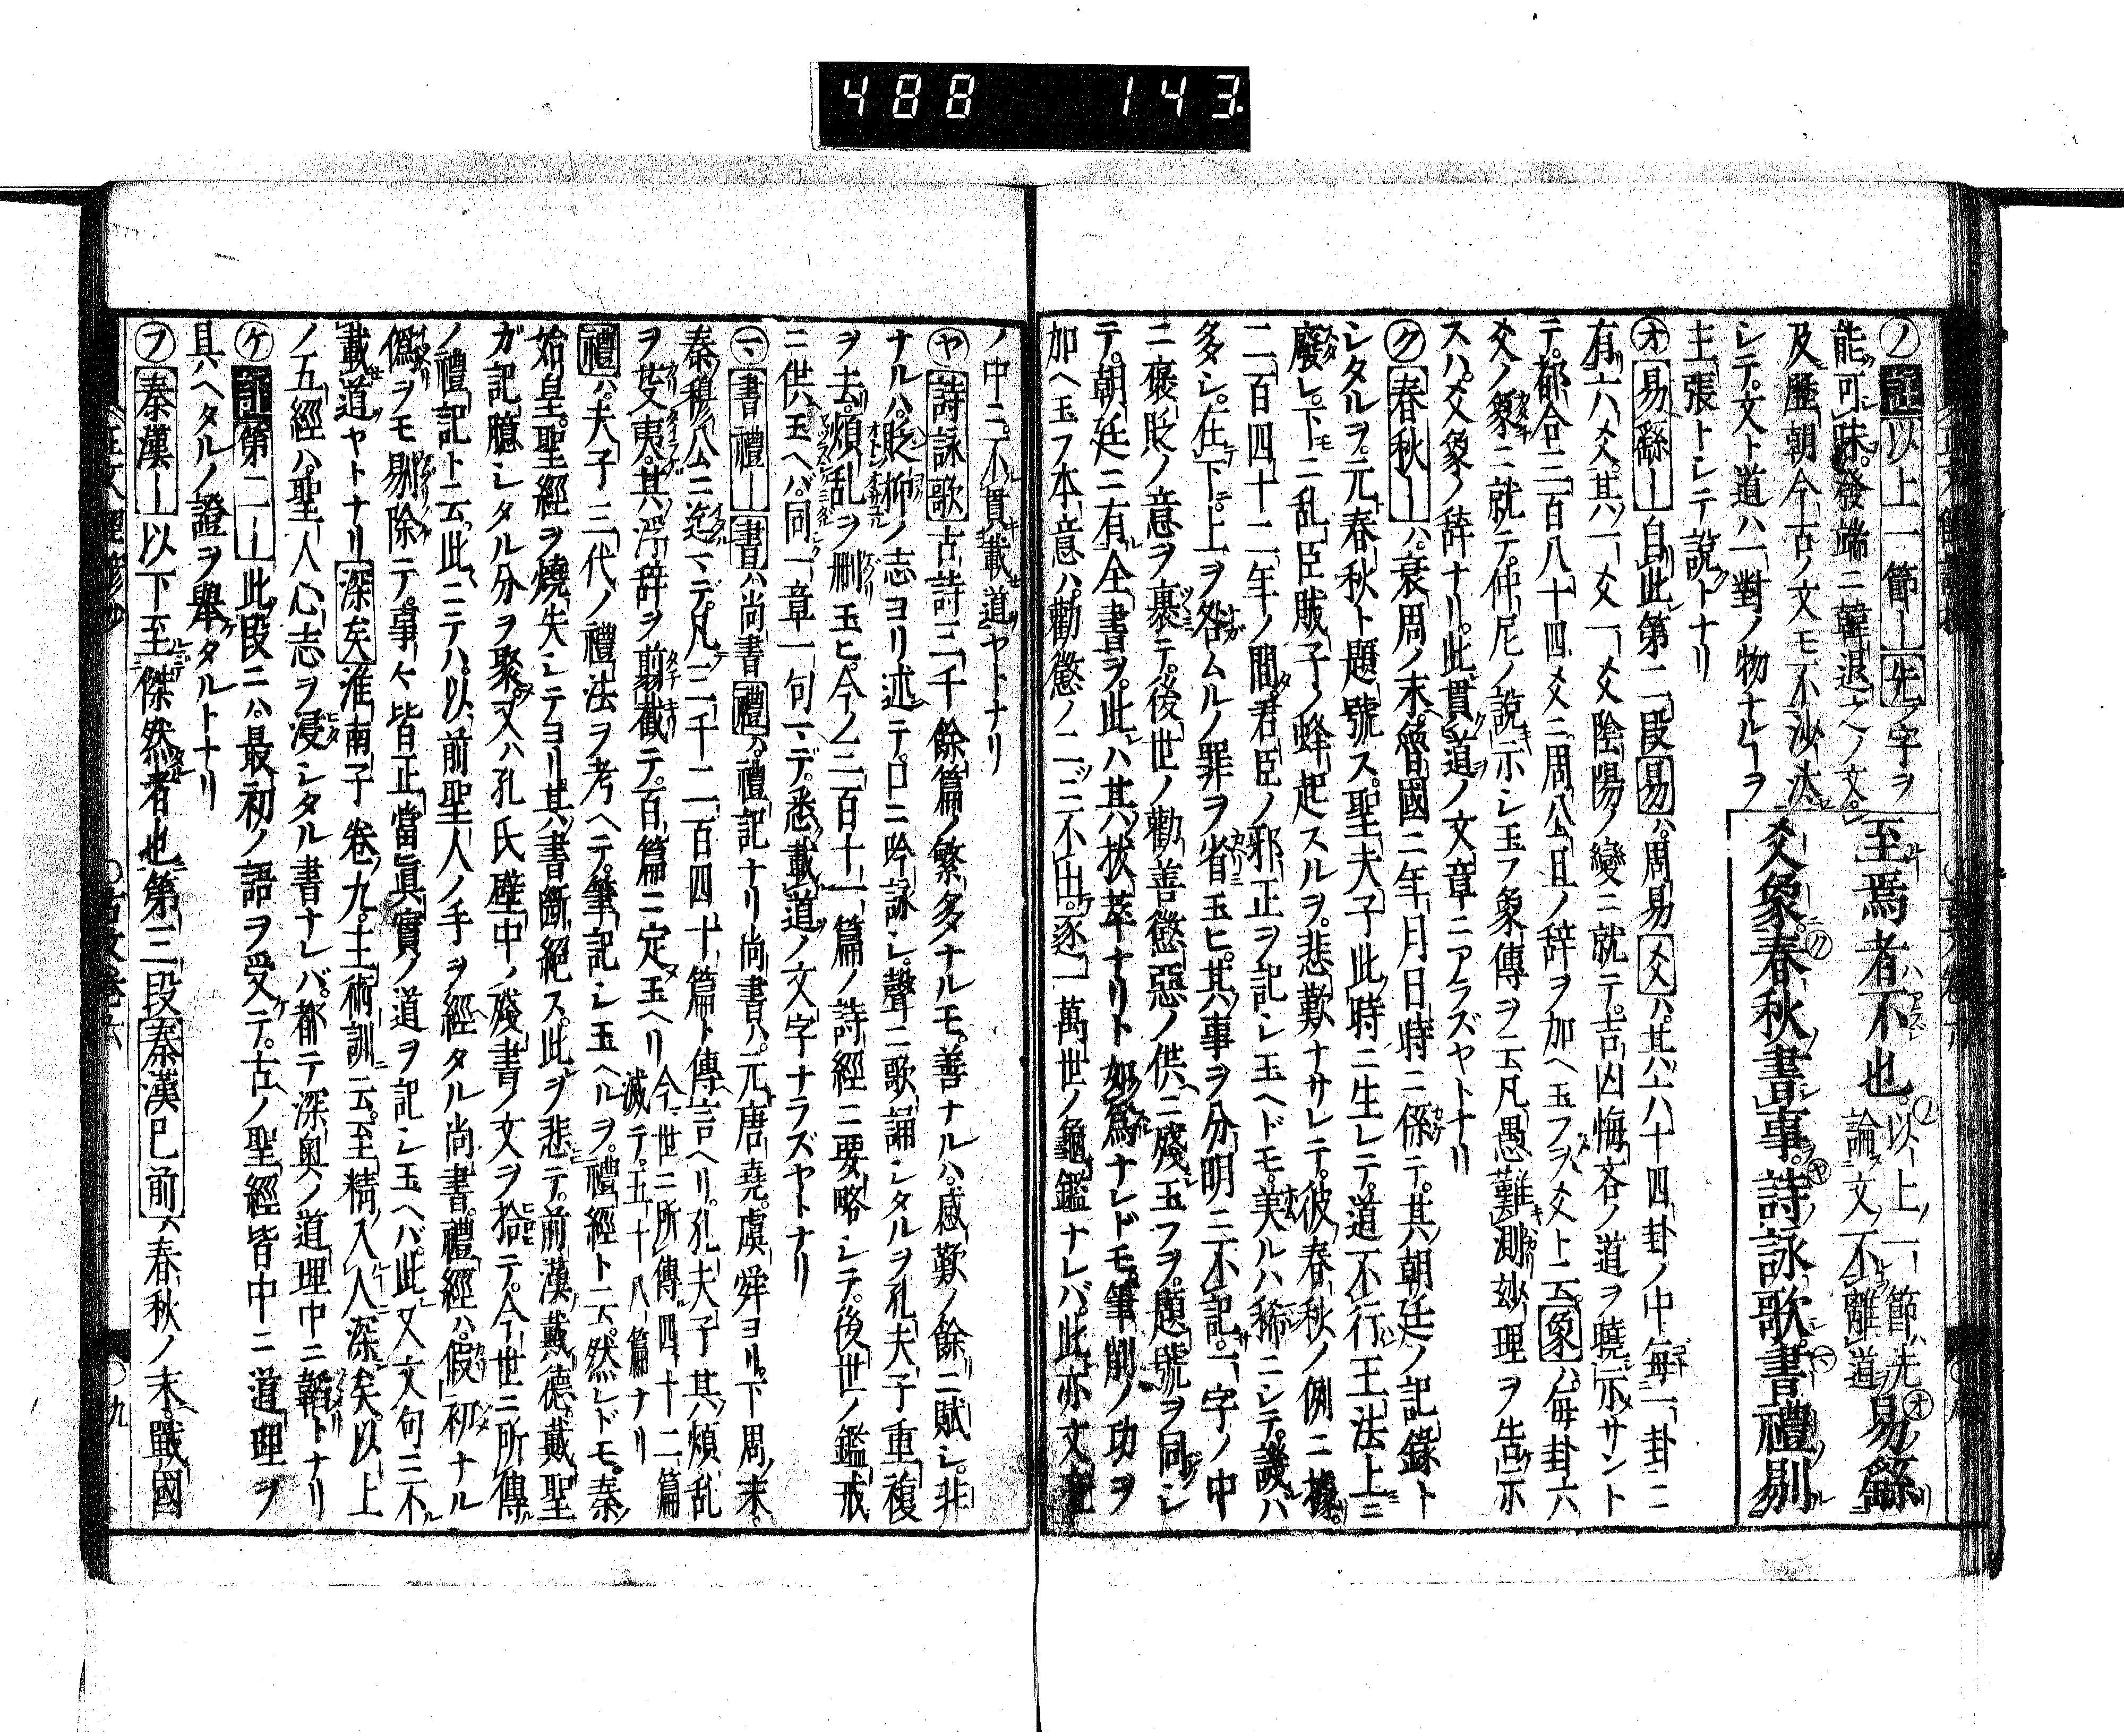 488 143.
至焉者不也。以上一節ハ先論文不離道易繇
爻象。春秋書事。詩詠歌。書禮剔
ノ註以上一節ー先ノ字ヲ
能可味。發端ニ韓退之ノ文。
及歴朝今古ノ文モ不沙汰
シテ。文ト道ハ一對ノ物ナルヿヲ
主張トシテ説トナリ
オ易繇ー自此第二段易ハ。周易爻ハ。其六八十四卦ノ中毎一卦ニ
有六爻。其一爻一爻陰陽ノ變ニ就テ。吉凶悔吝ノ道ヲ曉示サント
テ。都合三百八十四爻ニ。周公旦ノ辞ヲ加ヘ玉フヲ爻ト云。象ハ。毎卦六
爻ノ象ニ就テ。仲尼ノ説示シ玉フ象傳ヲ云凡愚難測妙理ヲ告示
スハ。爻象ノ辞ナリ。此貫道ノ文章ニアラズヤトナリ
ク春秋ーハ。衰周ノ末。魯國ニ年月日時ニ係テ。其朝廷ノ記錄ト
シタルヲ。元春秋ト題號ス。聖夫子此時ニ生レテ。道不行王法上ニ
廢レ。下ニ乱臣賊子ノ蜂起スルヲ。悲歎ナサレテ。彼春秋ノ例ニ據。
二百四十二年ノ間。君臣ノ邪正ヲ記シ玉ヘドモ。美ルハ稀ニシテ。譏ハ
多シ。在下。上ヲ咎ムルノ罪ヲ省玉ヒ。其事ヲ分明ニ不記。一字ノ中
ニ襃貶ノ意ヲ裹テ。後世ノ勸善懲惡ノ供ニ殘玉フヲ。題號ヲ同シ
テ。朝廷ニ有全書ヲ。此ハ其拔萃ナリト如爲ナレドモ。筆削ノ功ヲ
加ヘ玉フ本意ハ。勸懲ノ二ツニ不出。逐一萬世ノ龜鑑ナレバ。此亦文章
ノ中ニ。不貫載道ヤトナリ
ヤ詩詠歌古詩三千餘篇ノ繁多ナルモ。善ナルハ。感歎ノ餘ニ賦シ。非
ナルハ。貶抑ノ志ヨリ述テ。口ニ吟詠シ。聲ニ歌誦シタルヲ孔夫子重複
ヲ去。煩乱ヲ刪玉ヒ。今ノ三百十一篇ノ詩經ニ要略シテ。後世ノ鑑戒
ニ供玉ヘバ。同一章一句マデ。悉載道ノ文字ナラズヤトナリ
マ書禮ー書ハ尚書禮ハ禮記ナリ尚書ハ。元唐堯。虞舜ヨリ。下周ノ末。
秦穆公ニ迄マデ。凡三千二百四十篇ト傳言ヘリ。孔夫子其煩乱
ヲ芟夷。其浮辞ヲ剪截テ。百篇ニ定玉ヘリ今世ニ所傳四十二篇滅テ。五十八篇ナリ
禮ハ。夫子三代ノ禮法ヲ考ヘテ。筆記シ玉ヘルヲ。禮經ト云。然レドモ。秦ノ
始皇。聖經ヲ燒失シテヨリ。其書斷絕ス。此ヲ悲テ。前漢戴德。戴聖
ガ記臆シタル分ヲ聚。又ハ孔氏壁中ノ殘書ノ文ヲ拾テ。今世ニ所傳
ノ禮記ト云。此ニテハ。以前聖人ノ手ヲ經タル尚書。禮經ハ。假初ナル
僞ヲモ剔除テ。事々皆正當眞實ノ道ヲ記シ玉ヘバ。此又文句ニ不
載道ヤトナリ深矣淮南子卷九。主術訓ニ云。至精入人深矣。以上
ノ五經ハ。聖人心志ヲ浸シタル書ナレバ。都テ深奥ノ道理中ニ韜トナリ
ケ前第二ー此段ニハ。最初ノ語ヲ受テ。古ノ聖經皆中ニ道理ヲ
具ヘタルノ證ヲ舉タルトナリ
フ秦漢ー以下至傑然者也第三段秦漢已前ハ春秋ノ末。戰國
九